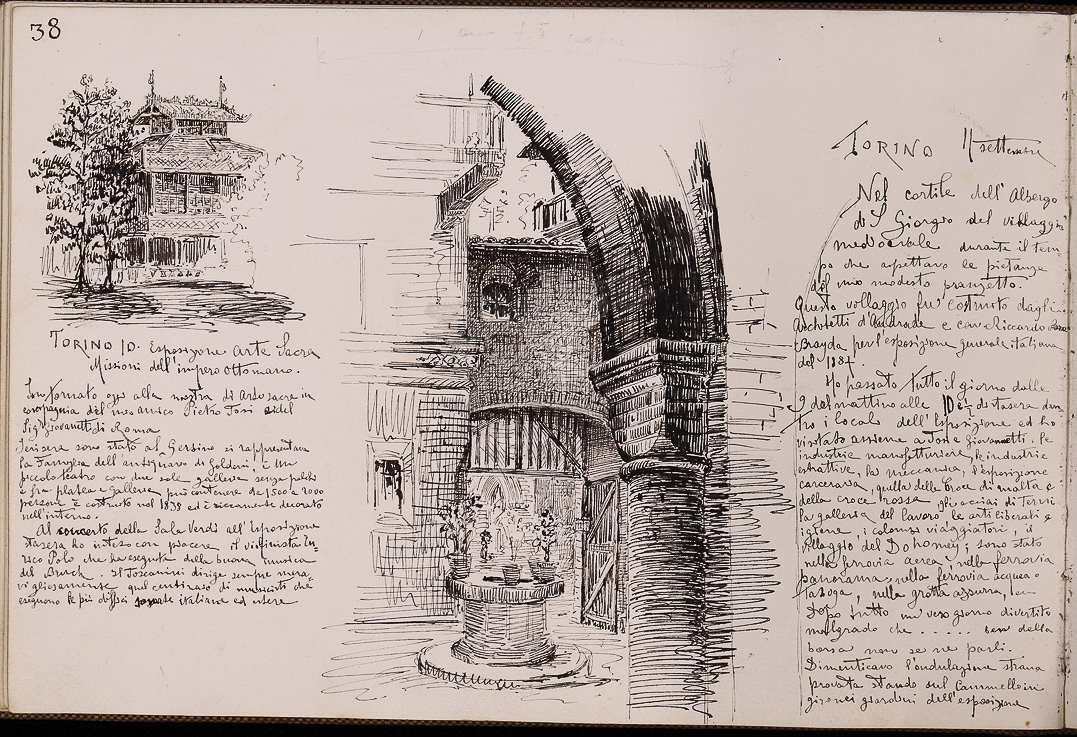 38
TORINO 10. Esposizione Arte Sacra
Missioni dell'impero Ottomano.
Son tornato oggi alla mostra di Arte sacra in
compagnia del mio amico Pietro Tosi e del
Sig. Giovannetti di Roma
Ierisera sono stato al Gerbino si rappresentava
la Famiglia dell'antiquario di Goldoni, è un
piccolo teatro con due sole gallerie senza palchi
e fra platea e galleria può contenere da 1500 a 2000
persone è costruito nel 1838 ed è riccamente decorato
nell'interno.
Al concerto della Sala Verdi all'Esposizione
stasera ho inteso con piacere il violinista En-
rico Polo che ha eseguito della buona musica
del Bruch. Il Toscanini dirige sempre mera-
vigliosamente quel centinaio di musicisti che
eseguono le più difficili italiane ed estere
TORINO 11 settembre
Nel cortile dell'Albergo
di S Giorgio del villaggio
medioevale durante il tem-
po che aspettavo le pietanze
del mio modesto pranzetto.
Questo villaggio fu costruito dagli
Architetti d'Andrade e con Riccardo
Brayda per l'esposizione generale italiana
del 1884.
Ho passato tutto il giorno dalle
9 del mattino alle 10 e ½ di stasera den-
tro i locali dell'Esposizione ed ho
visitato assieme a Tosi e Giovannetti. le
industrie manifatturiere, le industrie
estrattive, la meccanica, l'esposizione
carceraria, quella della Croce di malta e
della croce rossa gli acciai di Terni
la galleria del lavoro le arti liberali e
igiene, i colossi viaggiatori, il
villaggio del Dohomey; sono stato
nella ferrovia aerea, nella ferrovia
panorama, nella ferrovia acquea o
taboga, nella grotta azzurra,
Dopo tutto un vero giorno divertito
malgrado che . . . . . . della
borsa non se ne parli.
Dimenticavo l'ondulazione strana
provata stando sul Cammello in
giro nei giardini dell'esposizione